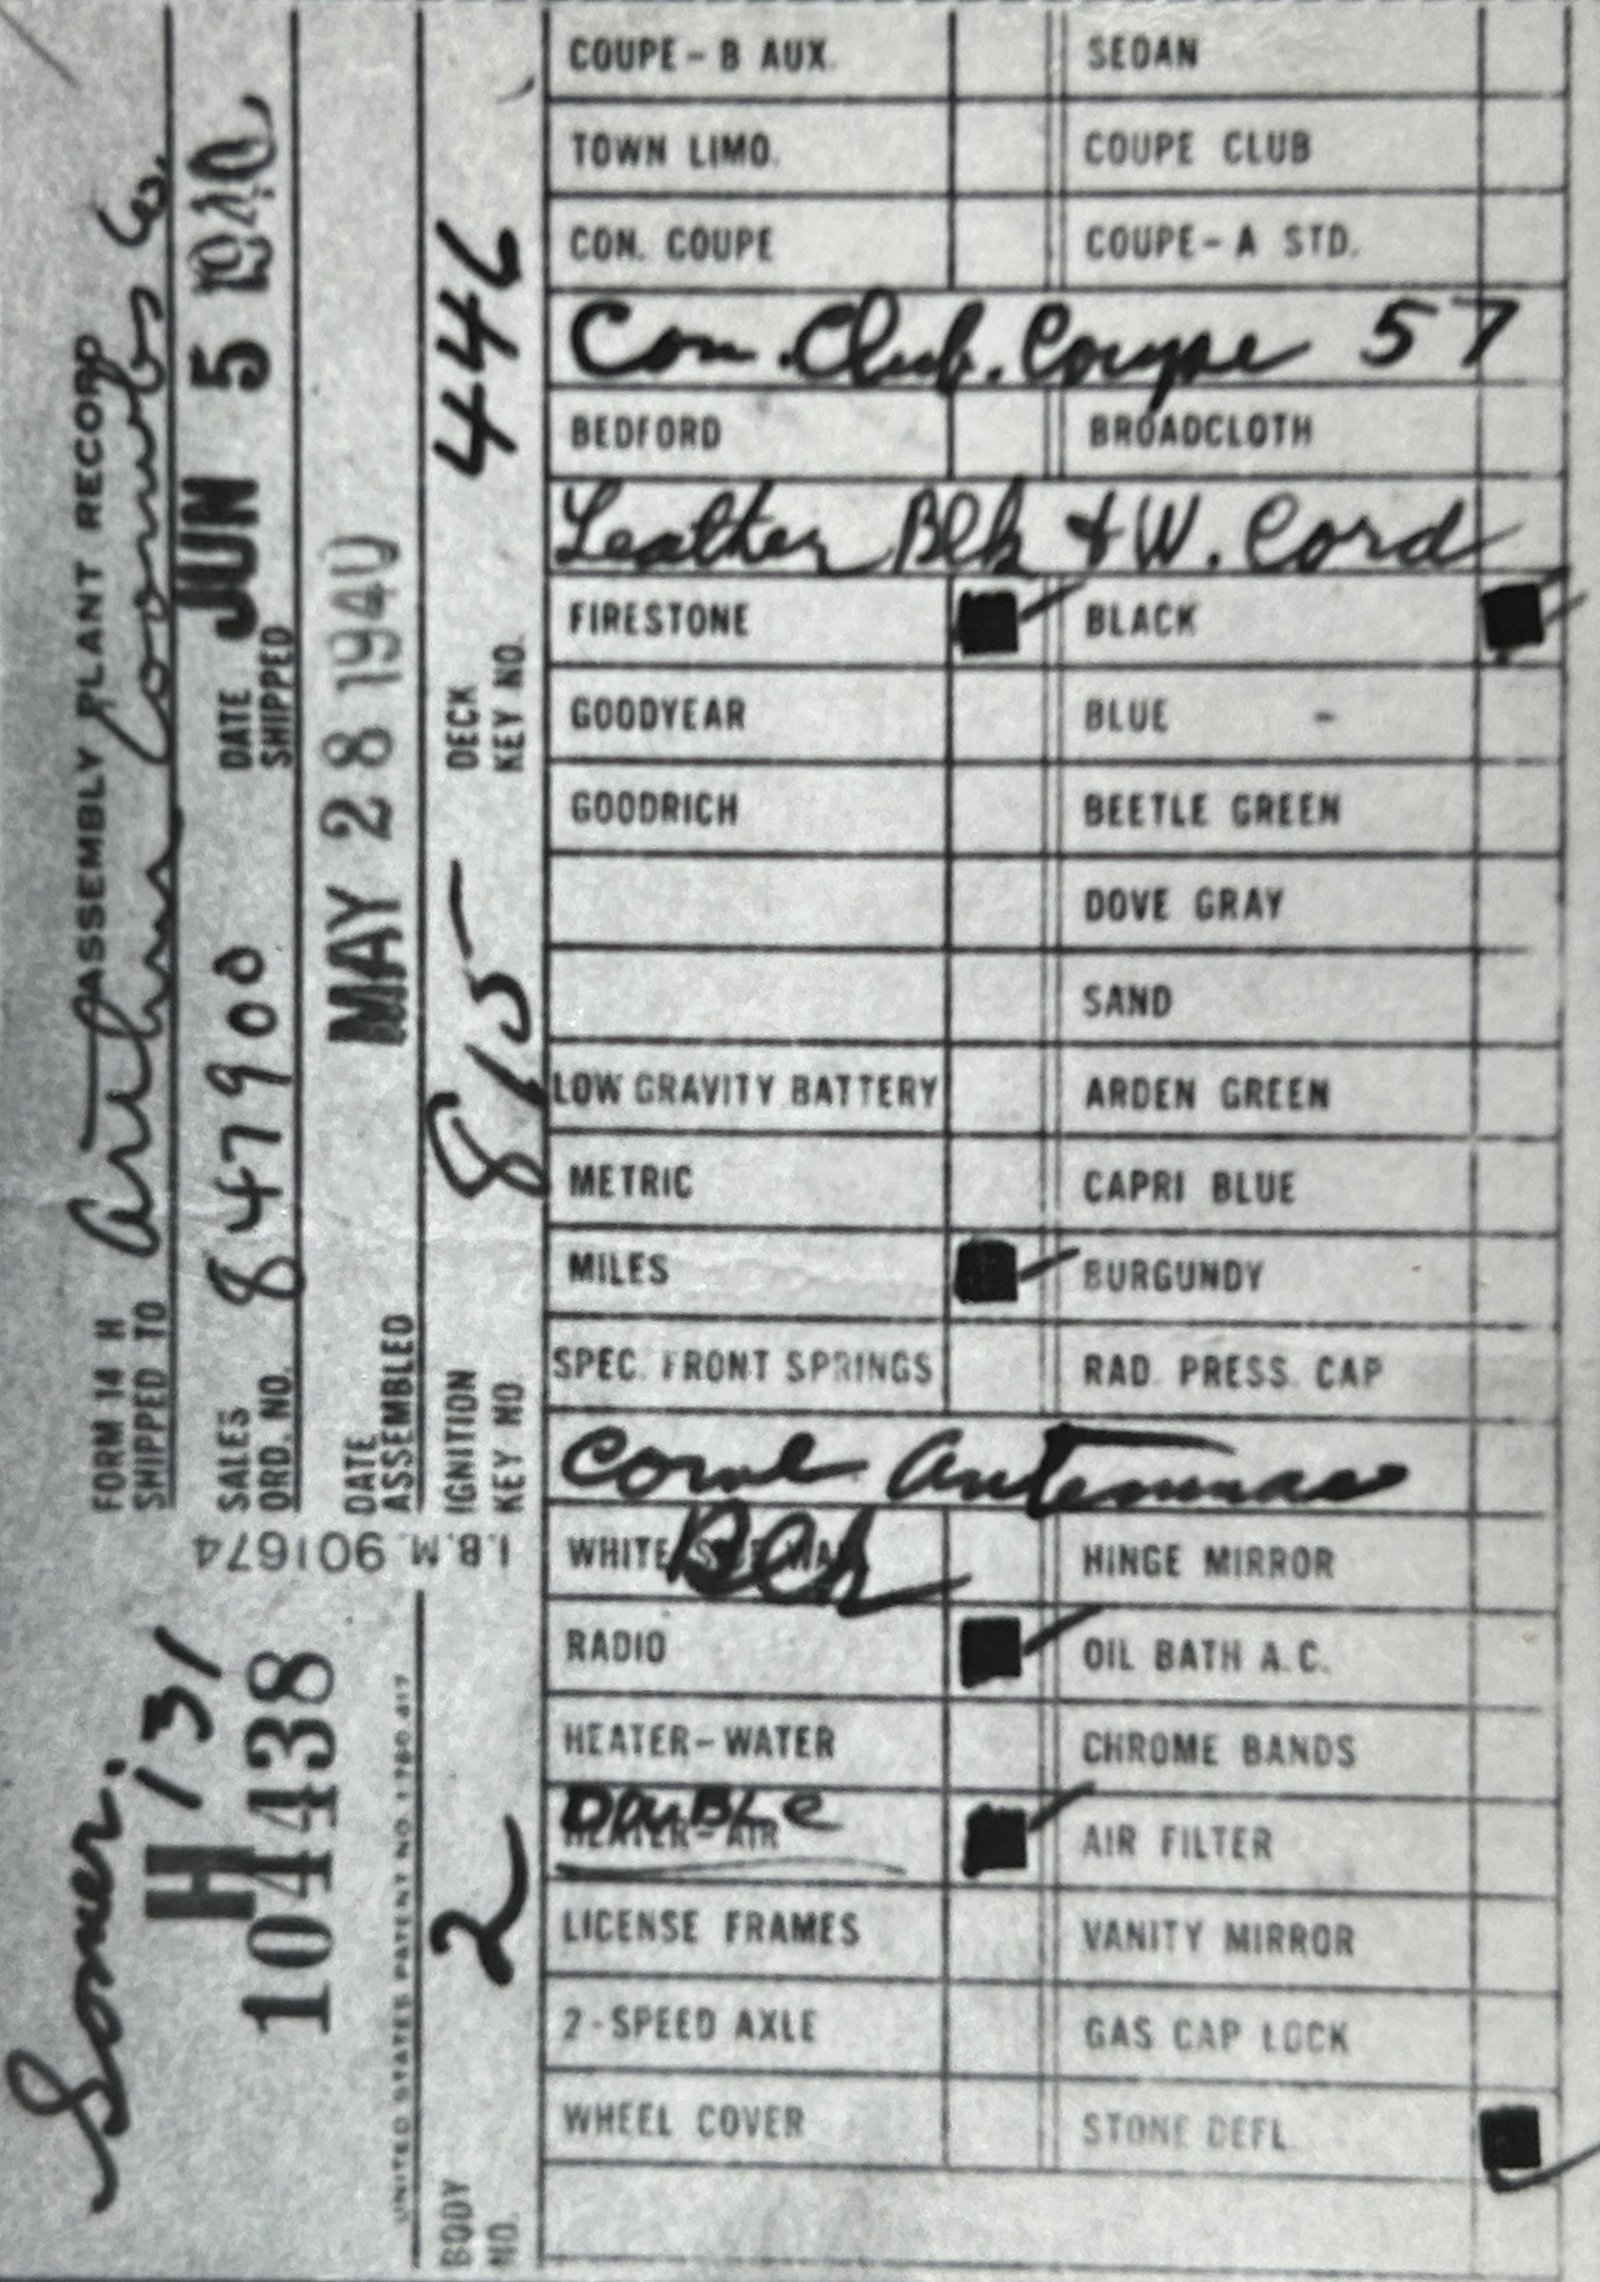 FORM 14 H ASSEMBLY PLANT RECORD
SHIPPED TO Arthur Coombs Co.
SALES ORD. NO. 847900 DATE SHIPPED JUN 5 1940
DATE ASSEMBLED MAY 28 1940
IGNITION KEY NO. 815 DECK KEY NO. 446
I.B.M. 901674
H 131
H
104438
UNITED STATES PATENT NO. 1780 417
BODY NO. 2
COUPE-B AUX. SEDAN
TOWN LIMO. COUPE CLUB
CON. COUPE COUPE-A STD.
Con. Club. Coupe 57
BEDFORD BROADCLOTH
Leather Blk & W. Cord
FIRESTONE BLACK
GOODYEAR BLUE -
GOODRICH BEETLE GREEN
DOVE GRAY
SAND
LOW GRAVITY BATTERY ARDEN GREEN
METRIC CAPRI BLUE
MILES BURGUNDY
SPEC. FRONT SPRINGS RAD. PRESS. CAP
Cowl Antennae
WHITE SIDE WALL Blk HINGE MIRROR
RADIO OIL BATH A.C.
HEATER-WATER CHROME BANDS
DOUBLE
HEATER-AIR AIR FILTER
LICENSE FRAMES VANITY MIRROR
2-SPEED AXLE GAS CAP LOCK
WHEEL COVER STONE DEFL.